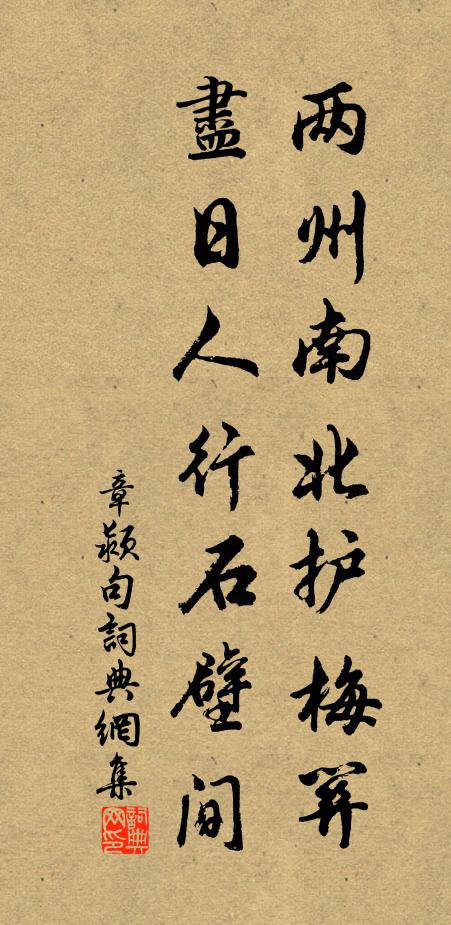 两州南北护梅关
盡日人行石壁間
章句詞典網集
詞典
网印